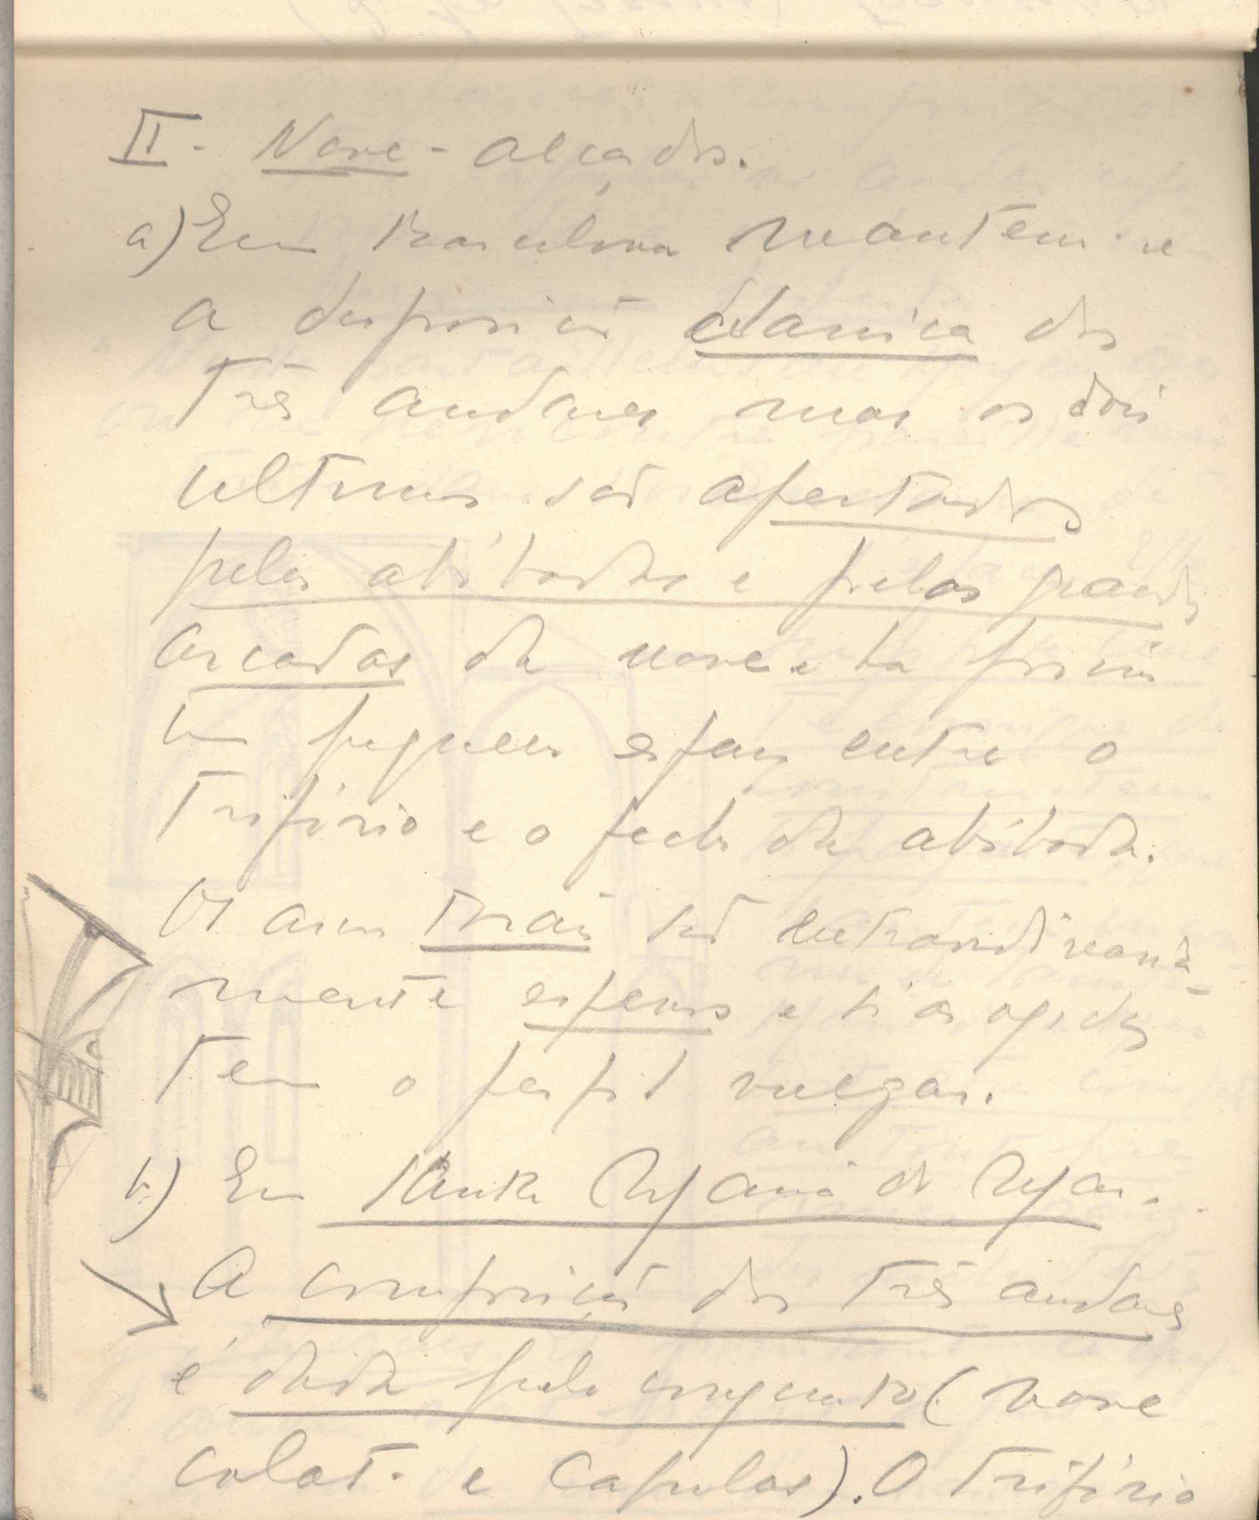 II - Nave - alçados.
a) Em Barcelona mantem-se
a disposição classica dos
três andares mas os dois
ultimos são apertados
pelas abóbodas e pelas grandes
arcadas da nave e ha
um pequeno espaço entre o
trifório e o fecho da abóboda.
Os arcos torais são extraordinaria-
mente espessos e só as ogivas
tem o perfil vulgar.
b) Em Santa Maria do Mar.
A composição dos três andares
é dada pelo conjunto (nave
colat. e capelas). O trifório